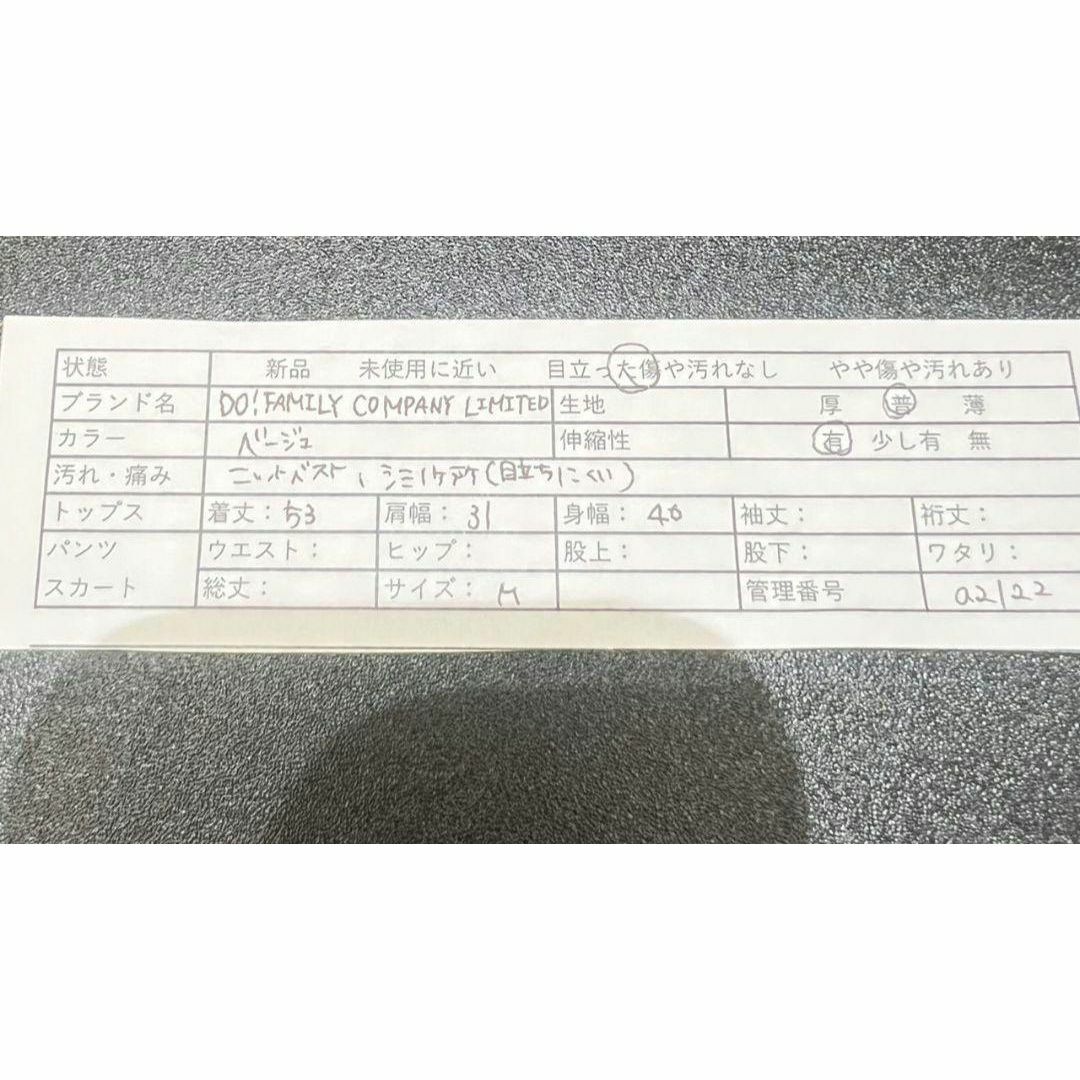 状態 新品 未使用に近い 目立った傷や汚れなし やや傷や汚れあり
ブランド名 DO!FAMILY COMPANY LIMITED 生地 厚 普 薄
カラー ベージュ 伸縮性 有 少し有 無
汚れ・痛み ニットベスト、シミ1ヶ所(目立ちにくい)
トップス 着丈:53 肩幅:31 身幅:40 袖丈: 裄丈:
パンツ ウエスト: ヒップ: 股上: 股下: ワタリ:
スカート 総丈: サイズ:M 管理番号 a2122